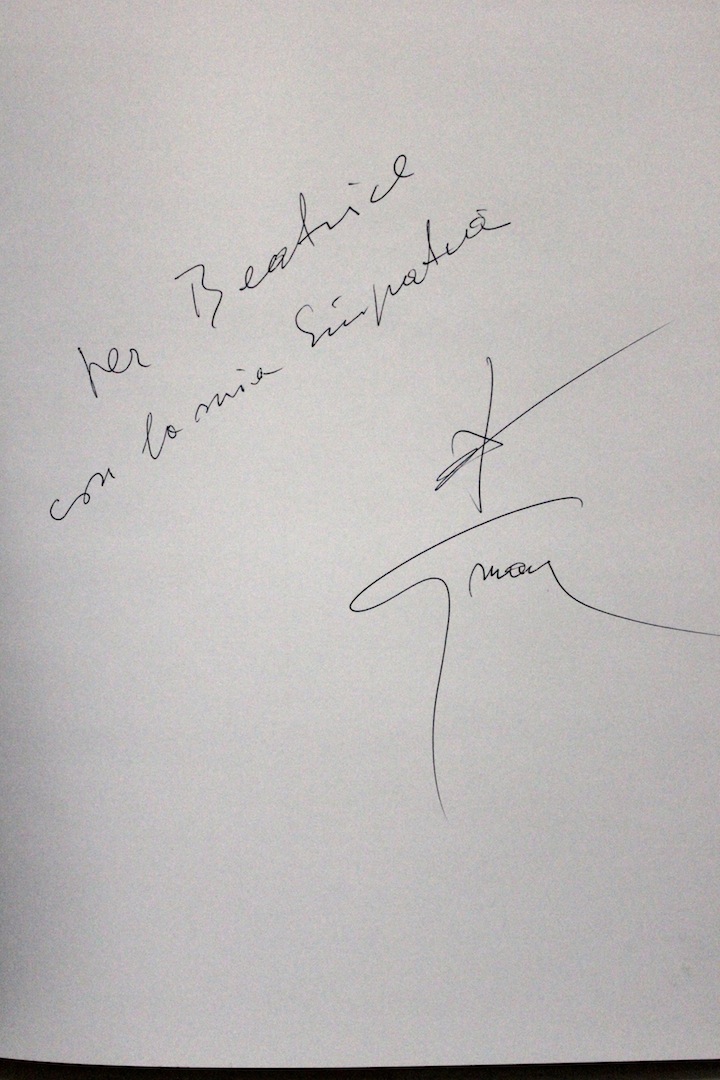 per Beatrice
con la mia simpatia